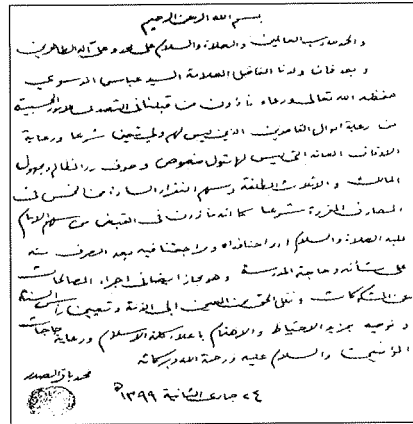 بسم الله الرحمن الرحيم
والحمد لله رب العالمين والصلاة والسلام على محمد وعلى آله الطاهرين
وبعد فان ولدنا الفاضل العلامة السيد عباس الموسوي
حفظه الله تعالى ورعاه مأذون من قبلنا في التصدي للامور الحسبية
من رعاية اموال القاصرين الذين ليس لهم ولي متعين شرعا ورعاية
الاوقاف العامة التي ليس لها متول منصوص وصرف رد المظالم ومجهول
المالك والاثلاث المطلقة وسهم الفقراء السادة من الخمس في
المصارف المقررة شرعا كما انه مأذون في القبض من سهم الامام
عليه الصلاة والسلام ارواحنا فداه ومراجعتنا فيه بعد الصرف منه
على شأنه وحاجة المدرسة وهو مجاز ايضا في اجراء المصالحات
عن المشكوكات ونقل الحق من العين الى الذمة وتعيين رأس السنة
ونوصيه بمزيد الاحتياط والاهتمام باعلاء كلمة الاسلام ورعاية حاجات
المؤمنين والسلام عليه ورحمة الله وبركاته
محمد باقر الصدر
٢٤ جمادى الثانية ١٣٩٩ هـ